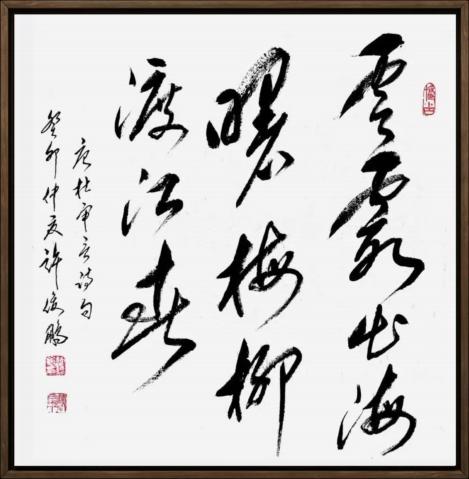 雲霞出海
曙梅柳
渡江春
唐杜审言诗句
癸卯仲夏许俊鹏